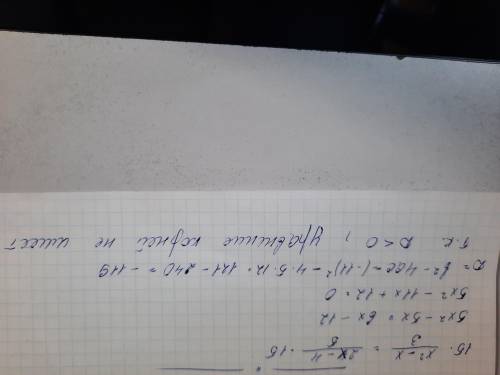 15 · (x² - x)/3 = (2x - 4)/5 · 15
5x² - 5x = 6x - 12
5x² - 11x + 12 = 0
D = b² - 4ac = (-11)² - 4·5·12 = 121 - 240 = -119
т.к. D < 0, уравнение корней не имеет